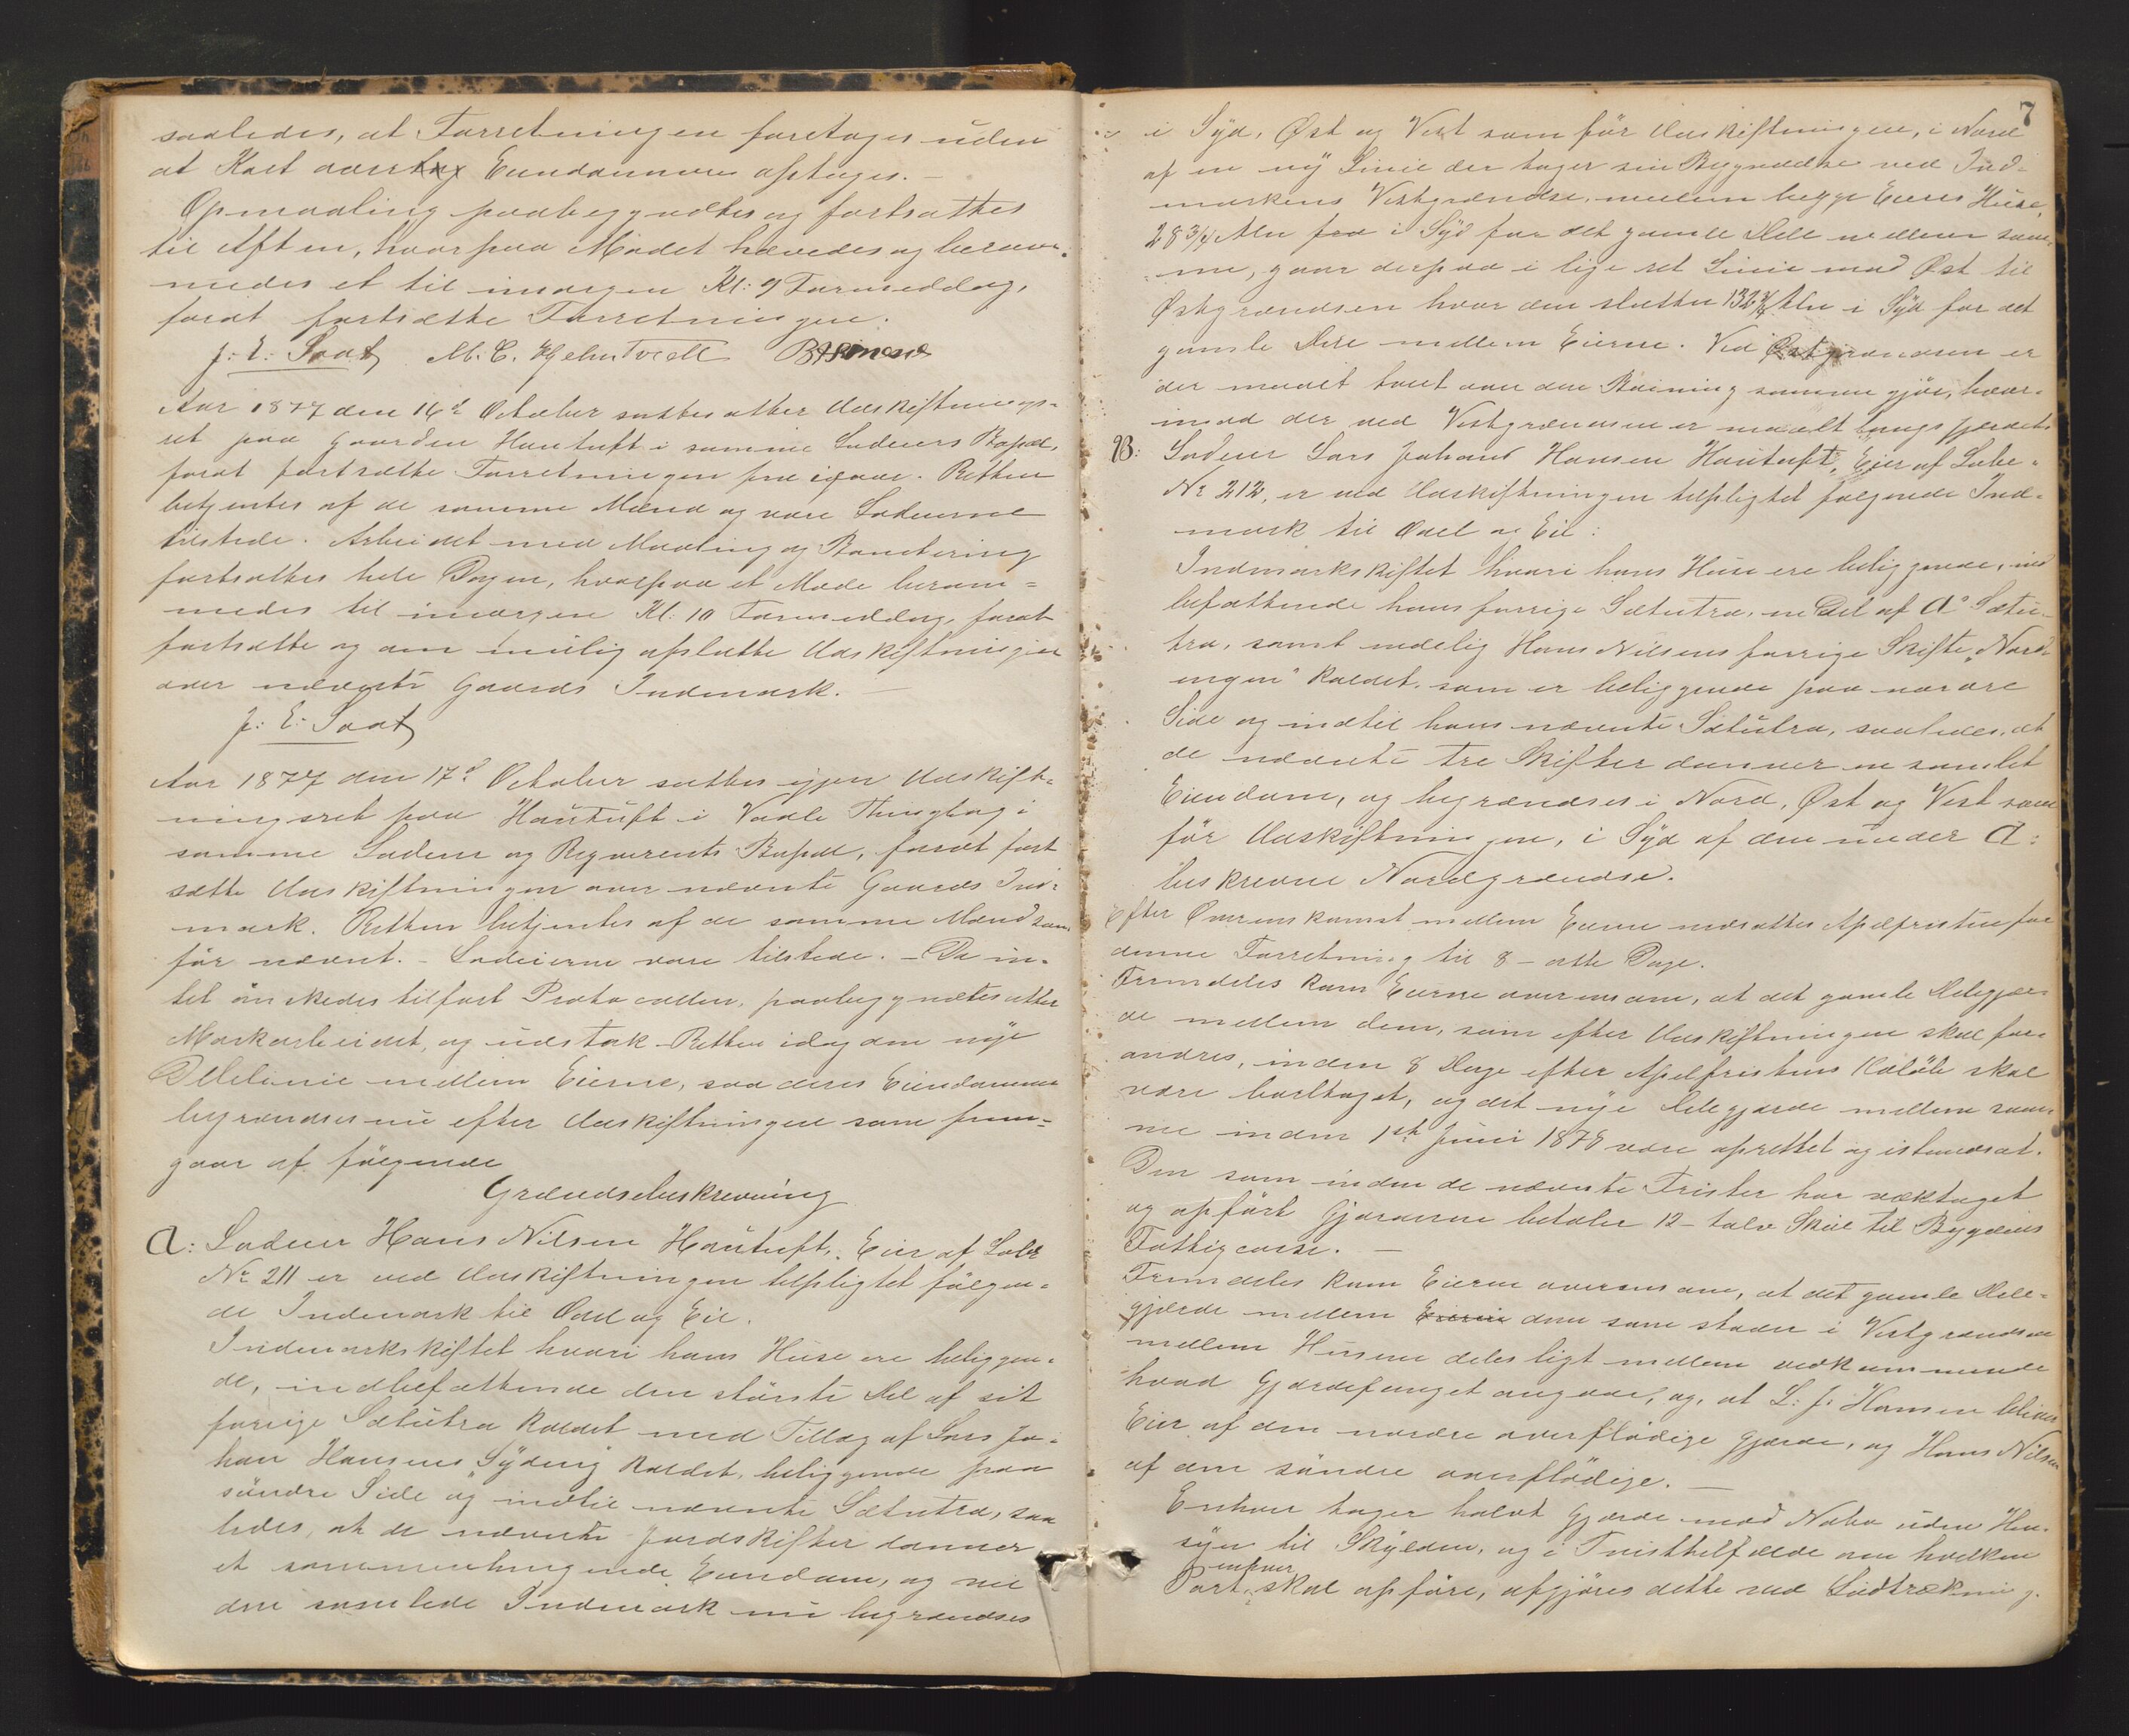 saaledes, at Forretningen foretages uden
at Kart over Eiendommene optages. –
Opmaaling paabegyndtes og fortsattes
til Aften, hvorpaa Mødet hævedes og beram-
medes et til imorgen Kl: 9 Formiddag,
forat fortsætte Forretningen.
J: E: Saat M. C. Gjelmtvedt
Aar 1877 den 16de October sattes atter Udskiftnings-
ret paa Gaarden Hautuft i samme Lodeiers Bopæl,
forat fortsætte Forretningen fra igaar. Retten
betjentes af de samme Mænd og vare Lodeierne
tilstede. Arbeidet med Maaling og Bonitering
fortsattes hele Dagen, hvorpaa et Møde beram=
medes til imorgen Kl: 10 Formiddag, forat
fortsætte og om mulig afslutte Udskiftningen
over nævnte Gaards Indmark. –
J: E: Saat
Aar 1877 den 17de October sattes igjen Udskift-
ningsret paa Hautuft i Vaale Thinglag i
samme Lodeier og Reqvirents Bopæl, forat fort
sætte Udskiftningen over nævnte Gaards Ind-
mark. Retten betjentes af de samme Mænd som
før nævnt. – Lodeierne vare tilstede. – Da in-
tet ønskedes tilført Protocollen, paabegyndtes atter
Markarbeidet, og udstak Retten idag den nye
Delelinie mellem Eierne, saa deres Eiendomme
begrændses nu efter Udskiftningen som frem=
gaar af følgende
Grændsebeskrivning
A: Lodeier Hans Nilsen Hautuft, Eier af Løbe
No 211 er ved Udskiftningen tilpligtet følgen-
de Indmark til Odel og Eie.
Indmarksskiftet hvori hans Huse ere beliggen-
de, indbefattende den største Del af sit
forrige Sætutra kaldet med Tillæg af Lars Jo-
han Hansens Syding kaldet, beliggende paa
søndre Side og indtil nævnte Sætutra, saa
ledes, at de nævnte Jordskifter danner
et sammenhængende Eiendom, og
den samlede Indmark nu begrændses
7
i Syd, Øst og Vest som før Udskiftningen, i Nord
af en ny Linie der tager sin Begyndelse ved Ind-
markens Vestgrændse, mellem begge Eieres Huse,
28 3/4 Alen fra i Syd for det gamle Dele mellem sam-
me, gaar derpaa i lige ret Linie mod Øst til
Østgrændsen hvor den slutter 132 3/4 Alen i Syd for det
gamle Dele mellem Eierne. Ved Østgrændsen er
der maalt tvert over den Bøining samme gjør, hvor-
imod der ved Vestgrændsen er maalt langs Gjerdet.
B: Lodeier Lars Johan Hansen Hautuft, Eier af Løbe-
No 212, er ved Udskiftningen tilpligtet følgende Ind-
mark til Odel og Eie:
Indmarksskiftet hvori hans Huse ere beliggende, ind
befattende hans forrige Sætutra, en Del af A's Sætu-
tra, samt endelig Hans Nilsens forrige Skifte „Nord-
engen" kaldet, som er beliggende paa nordre
Side og indtil hans nævnte Sætutra, saaledes, at
de nævnte tre Skifter danner en samlet
Eiendom, og begrændses i Nord, Øst og Vest som
før Udskiftningen, i Syd af den under A:
beskrevne Nordgrændse.
Efter Overenskomst mellem Eierne nedsattes Apelfristen for
denne Forretning til 8 – otte Dage.
Fremdeles kom Eierne overens om, at det gamle Delegjær-
de mellem dem, som efter Udskiftningen skal for-
andres, inden 8 Dage efter Apelfristens Udløb skal
være borttaget, og det nye Delegjærde mellem sam-
me inden 1ste Juni 1878 være oprettet og istandsat.
Den som inden de nævnte Frister har væktaget
og opført Gjærderne betaler 12 – tolv Skil til Bygdens
Fattigcasse. –
Fremdeles kom Eierne overens om, at det gamle Dele-
gjærde mellem Eierne dem som staaer i Vestgrændsen
mellem Husene deles ligt mellem vedkommende
hvad Gjærdefanget angaar, og, at L: J: Hansen bliver
Eier af den nordre overflødige Gjærde, og Hans Nilsen
af den søndre overflødige. –
Enhver tager halvt Gjærde mod Nabo uden Hen-
syn til Skylden, og i Tvisttilfælde om hvilken
Part enhver skal opføre, afgjøres dette ved Lodtrækning.